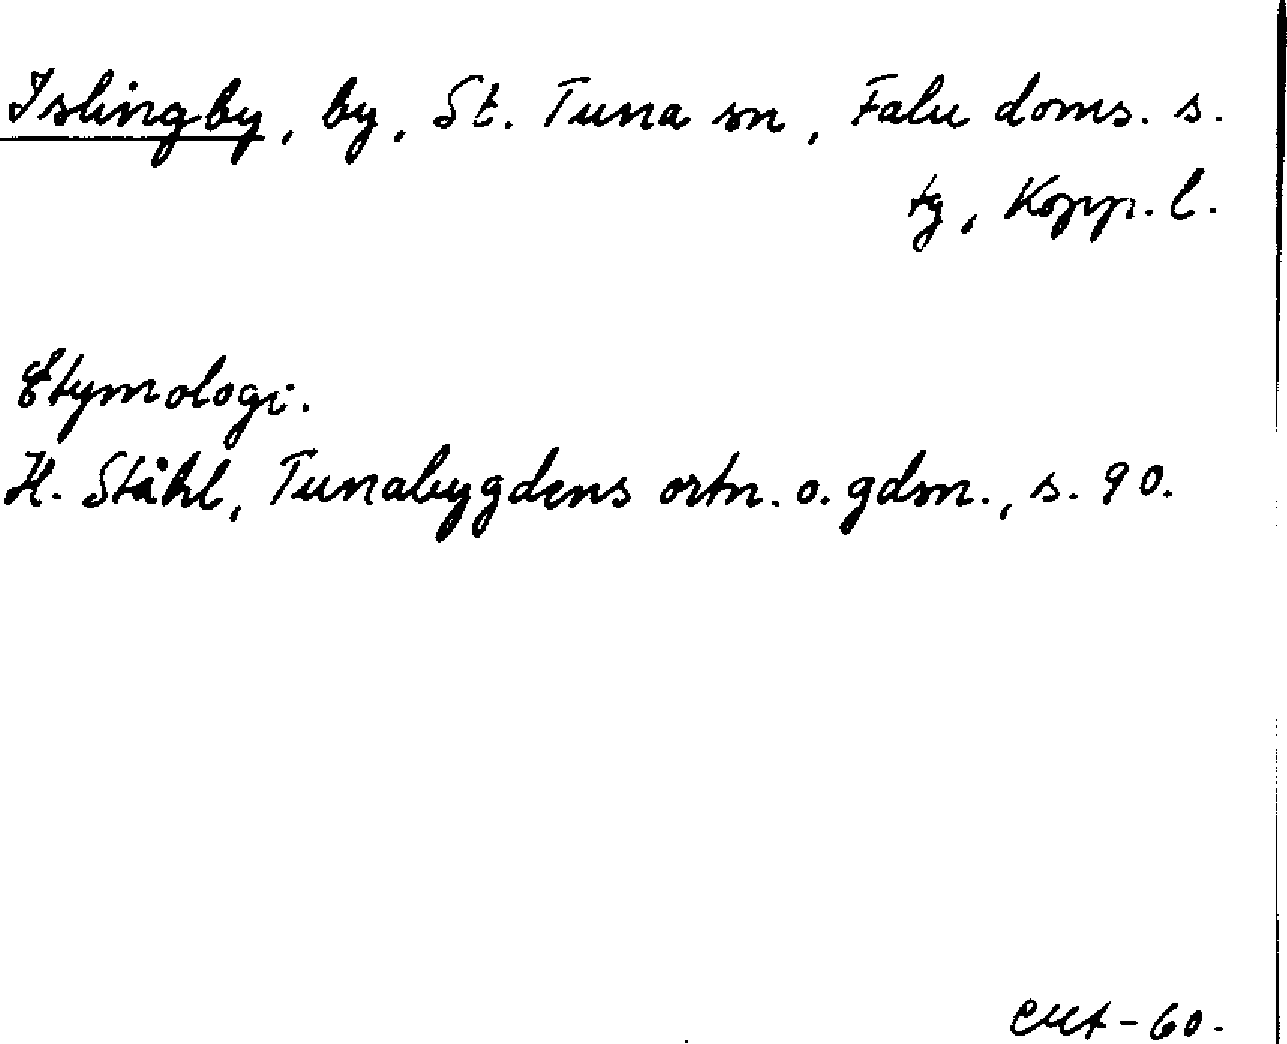 Islingby, by, St. Tuna sn, Falu doms. s.
tg, Kopp. l.
Etymologi.
H. Ståhl, Tunabygdens ortn. o. gdsn., s. 90.
-60.